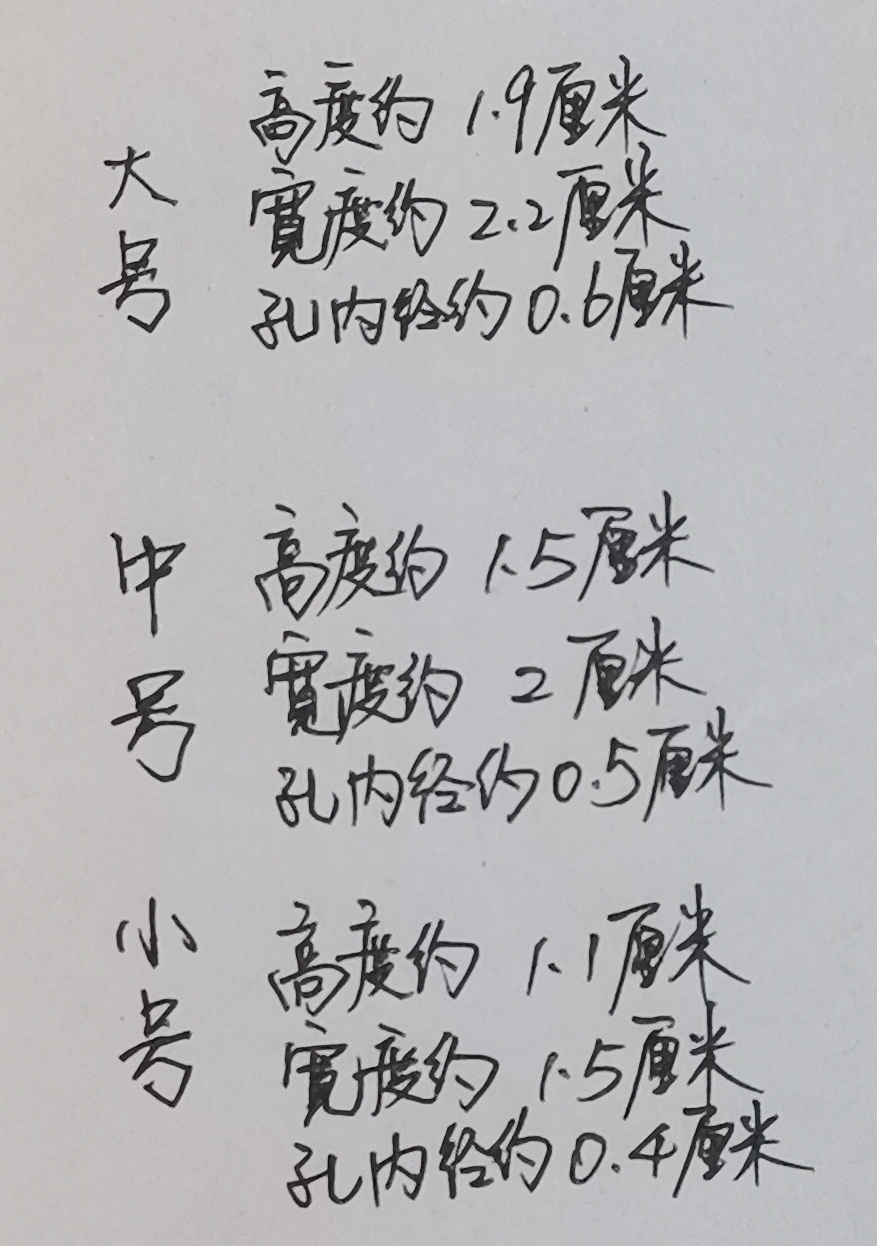 大号
高度约 1.9厘米
寬度约 2.2厘米
孔内径约 0.6厘米
中号
高度约 1.5厘米
寬度约 2厘米
孔内径约 0.5厘米
小号
高度约 1.1厘米
寬度约 1.5厘米
孔内径约 0.4厘米